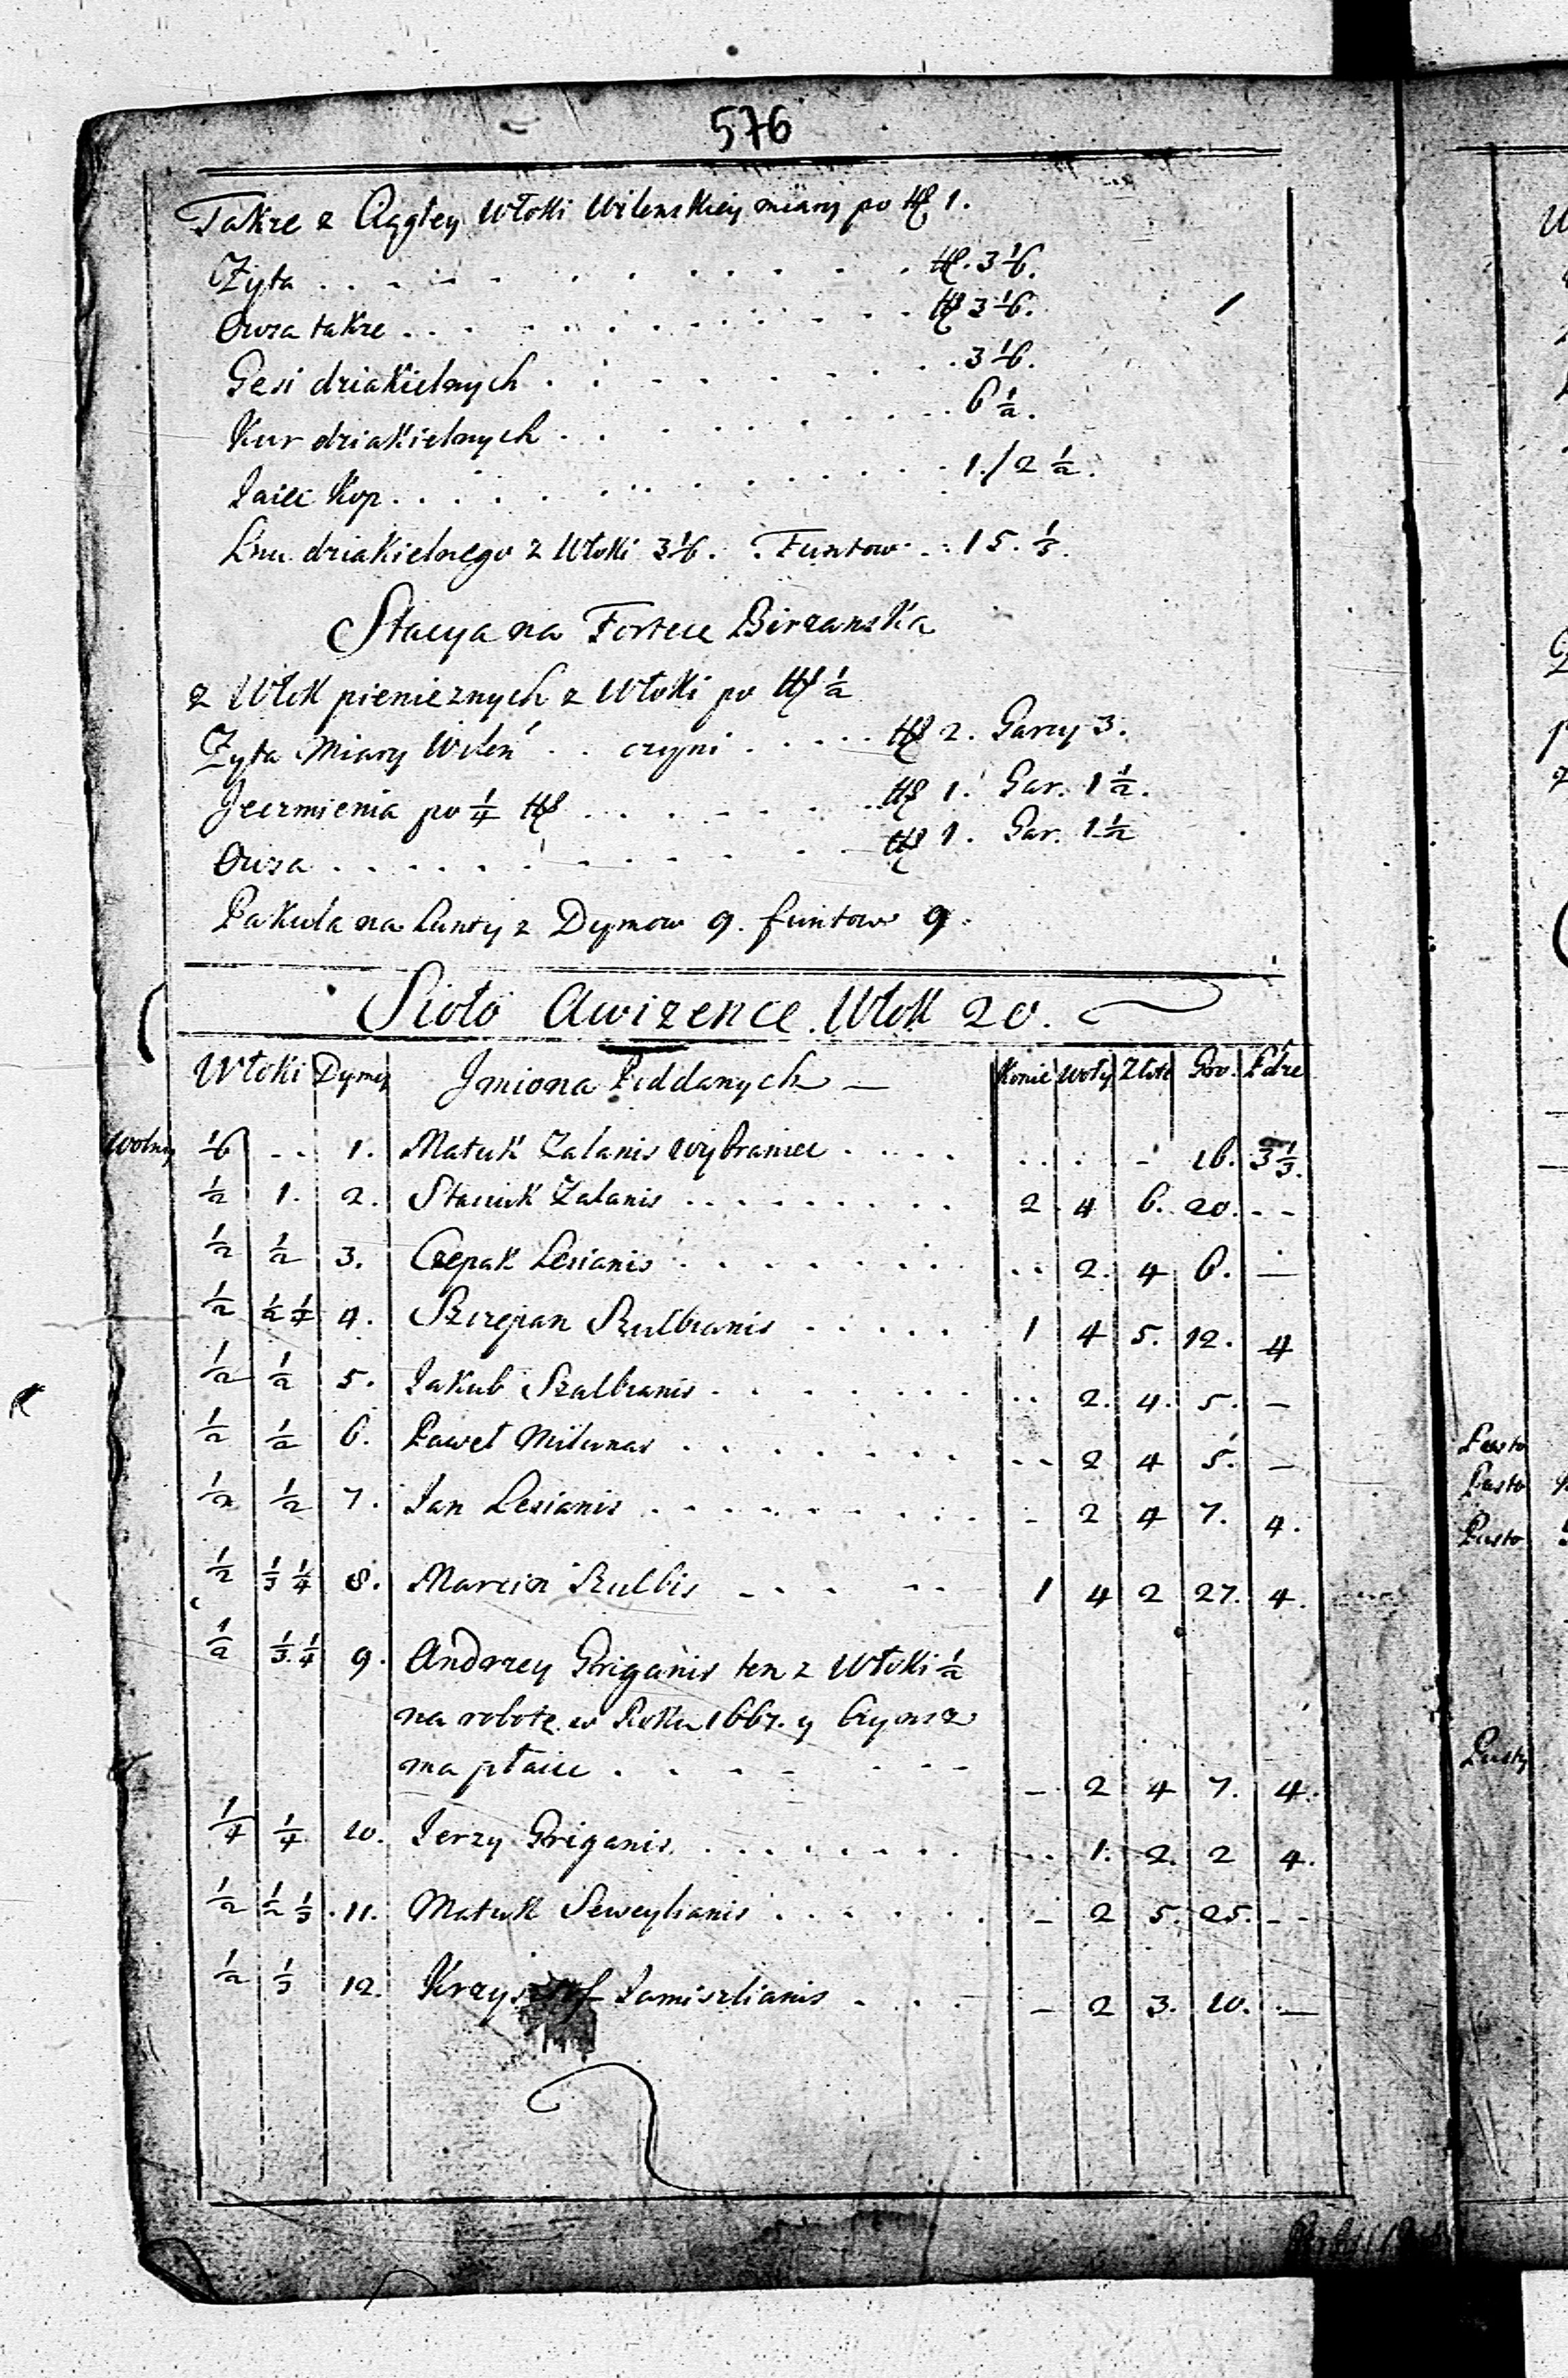 576
Takze z Ciągłey Włoki Wilenskiey miary po 1.
Zyta . . . . . . . . . . . 3 1/6.
Owsa takze . . . . . . . . . . 3 1/6.
Gesi dziakielnych . . . . . . . . 3 1/6.
Kur dziakielnych . . . . . . . . 6 1/2.
Jaiec Kop . . . . . . . . . . 1./2 1/2.
Lnu dziakielnego z Włoki 3 1/6. . Funtow . . 15. 1/3.
Stacya na Fortece Birzanska
z Włok pienieznych z Włoki po 1/2
Zyta Miary Wileń . . czyni . . . . . 2. Garcy 3.
Jeczmienia po 1/4 . . . . . . . 1. Gar. 1 1/2.
Owsa . . . . . . . . . . 1. Gar. 1 1/2
Pakula na Lunty z Dymow 9. funtow 9.
Sioło Awizence. Włok 20.
Włoki Dymy Jmiona Poddanych — Konie Woły Złote Gro. Pdze
Wolny 1/6 - - 1. Matuk Zalanis Wybraniec . . . . . . . - 16. 3 1/3.
1/2 1. 2. Stasiuk Zalanis . . . . . . . . 2 4 6. 20. - -
1/2 1/2 3. Czepak Lesianis . . . . . . . . . . 2. 4 6. —
1/2 1/2 1/4 4. Szczepan Szulbianis . . . . . 1 4 5. 12. 4
1/2 1/2 5. Jakub Szulbianis . . . . . . . . . 2. 4. 5. —
1/2 1/2 6. Paweł Milunas . . . . . . . - - 2 4 5. —
1/2 1/2 7. Jan Lesianis . . . . . . . . . - 2 4 7. 4.
1/2 1/3 1/4 8. Marcin Szulbis - - - - - 1 4 2 27. 4.
1/2 1/3 1/4 9. Andrzey Griganis ten z Włoki 1/2
na robotę w Roku 1667. y Czynsz
ma płacic . . - - - - - — 2 4 7. 4.
1/4 1/4 10. Jerzy Griganis . . . . . . . . . . 1. 2. 2 4.
1/2 1/2 1/3 11. Matuk Seweylianis . . . . . . — 2 5. 25. - -
1/2 1/3 12. Krzysztof Jamiszlianis . . . . — 2 3. 10. —
Pusto
Pusto
Pusto
Pusty